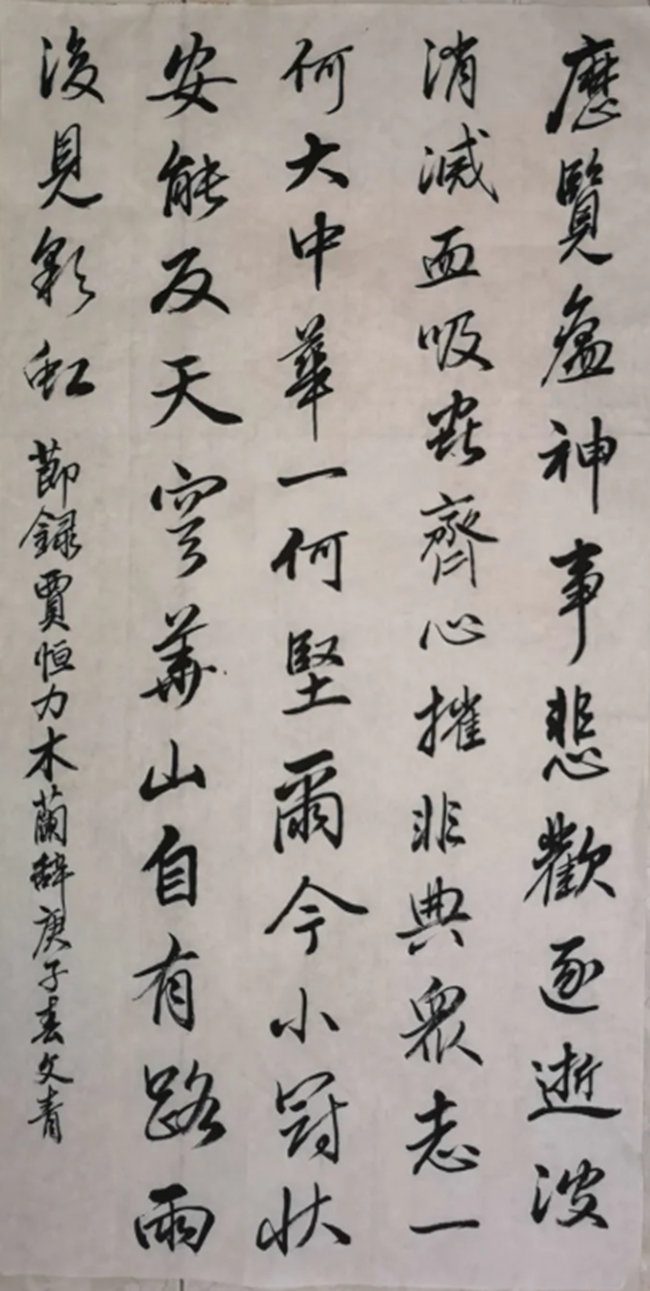 歷覽瘟神事悲歡逐逝波
消滅血吸蟲齊心摧非典眾志一
何大中華一何堅爾今小冠狀
安能反天穹華山自有路雨
後見彩虹 節錄賈恒力木蘭辭庚子春文青